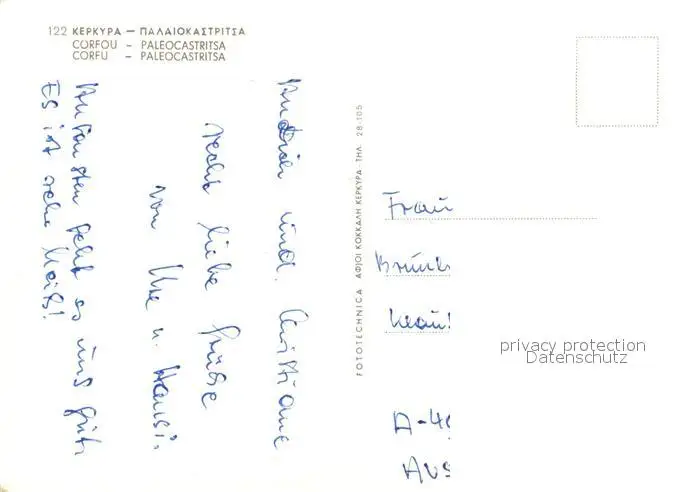 122 ΚΕΡΚΥΡΑ – ΠΑΛΑΙΟΚΑΣΤΡΙΤΣΑ
CORFOU - PALEOCASTRITSA
CORFU - PALEOCASTRITSA
und Christiane
recht liebe Grüße
von Ute u. Hansi.
geht es uns gut.
Es ist sehr heiß!
FOTOTECHNICA ΑΦ)ΟΙ ΚΟΚΚΑΛΗ ΚΕΡΚΥΡΑ - ΤΗΛ. 28-105
Frau
A-
privacy protection
Datenschutz